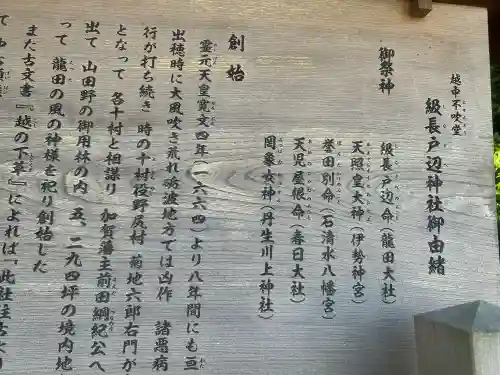 越中不吹堂
級長戸辺神社御由緒
御祭神
級長戸辺命(龍田大社)
天照皇大神(伊勢神宮)
誉田別命(石清水八幡宮)
天児屋根命(春日大社)
罔象女神(丹生川上神社)
創始
霊元天皇寛文四年(一六六四)より八年間にも亘
出穂時に大風吹き荒れ砺波地方では凶作 諸悪病
行が打ち続き 時の十村役野尻村 菊地六郎右門が
となって 各十村と相謀り 加賀藩主前田綱紀公へ
出て 山田野の御用林の内 五、二九四坪の境内地
って 龍田の風の神様を祀り創始した
また古文書『越の下草』によれば、此社往古より